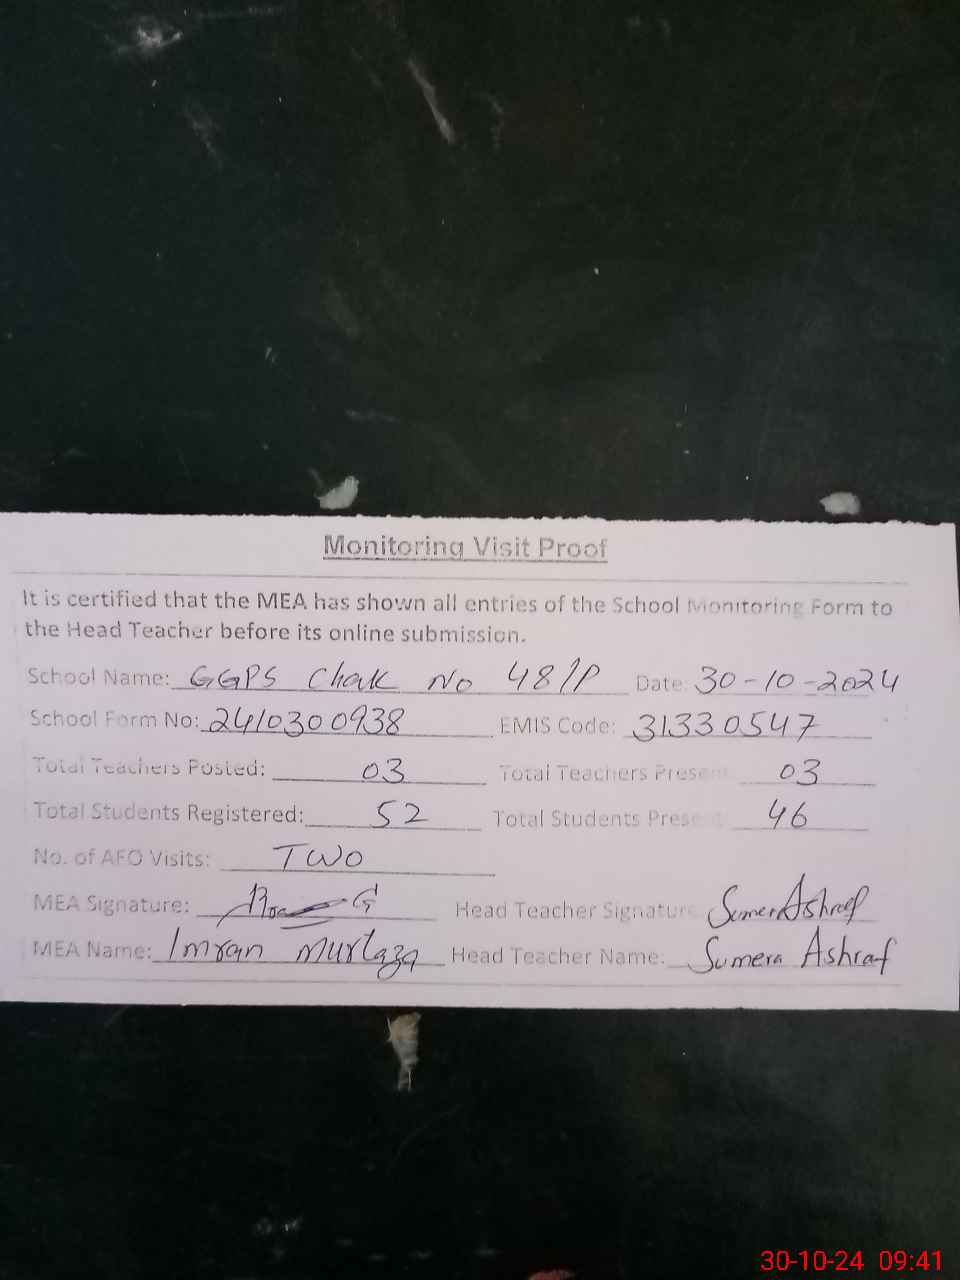 Monitoring Visit Proof
It is certified that the MEA has shown all entries of the School Monitoring Form to
the Head Teacher before its online submission.
School Name: GGPS Chak No 48/P Date: 30-10-2024
School Form No: 2410300938 EMIS Code: 31330547
Total Teachers Posted: 03 Total Teachers Present 03
Total Students Registered: 52 Total Students Present 46
No. of AFO Visits: TWO
MEA Signature: Head Teacher Signature Sumera Ashraf
MEA Name: Imran Murtaza Head Teacher Name: Sumera Ashraf
30-10-24 09:41